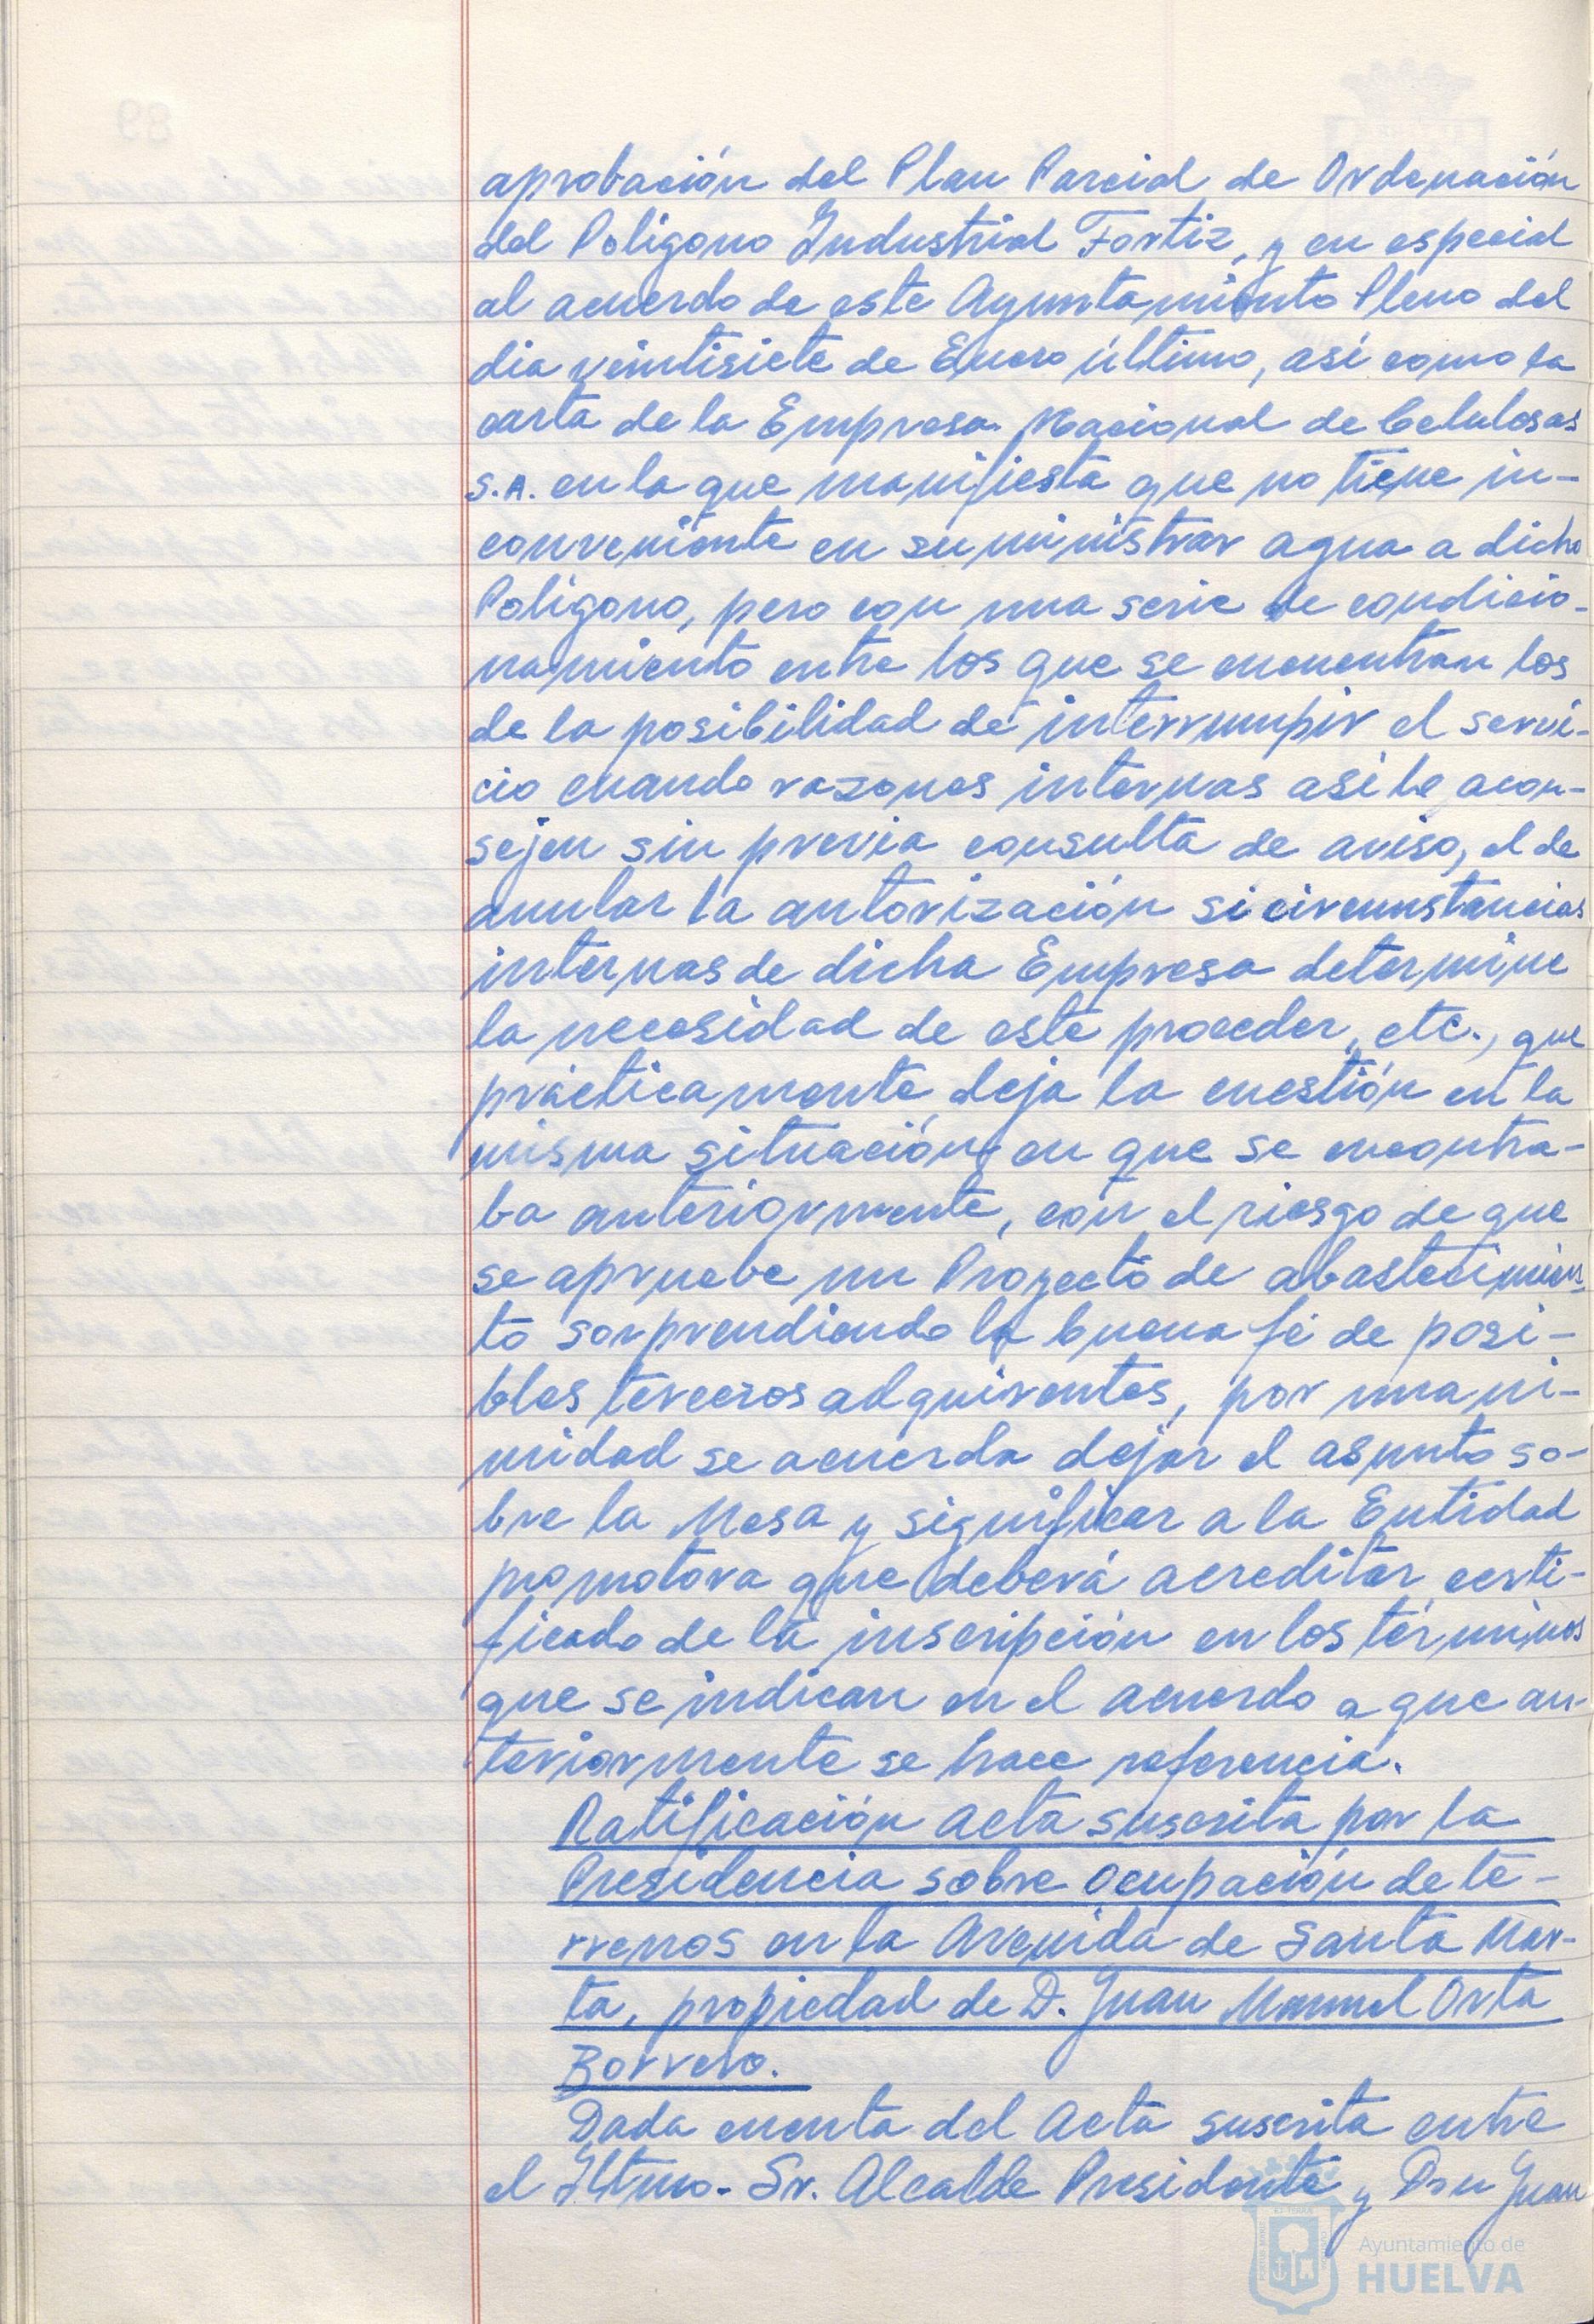 aprobación del Plan Parcial de Ordenación
del Poligono Industrial Fortiz, y en especial
al acuerdo de este Ayuntamiento Pleno del
dia veintisiete de Enero último, así como la
carta de la Empresa Nacional de Celulosas
S.A. en la que manifiesta que no tiene in-
conveniente en suministrar agua a dicho
Poligono, pero con una serie de condicio-
namiento entre los que se encuentran los
de la posibilidad de interrumpir el servi-
cio cuando razones internas asi le acon-
sejen sin previa consulta de aviso, el de
anular la autorización si circunstancias
internas de dicha Empresa determine
la necesidad de este proceder, etc., que
prácticamente deja la cuestión en la
misma situación, en que se encontra-
ba anteriormente, con el riesgo de que
se apruebe un Proyecto de abastecimien-
to sorprendiendo la buena fé de posi-
bles terceros adquirentes, por unani-
midad se acuerda dejar el asunto so-
bre la Mesa y significar a la Entidad
promotora que deberá acreditar certi-
ficado de la inscripción en los términos
que se indican en el acuerdo a que an-
teriormente se hace referencia.
Ratificación Acta suscrita por la
Presidencia sobre ocupación de te-
rrenos en la Avenida de Santa Mar-
ta, propiedad de D. Juan Manuel Orta
Borrero.
Dada cuenta del Acta suscrita entre
el Iltmo. Sr. Alcalde Presidente y Don Juan
Ayuntamiento de
HUELVA